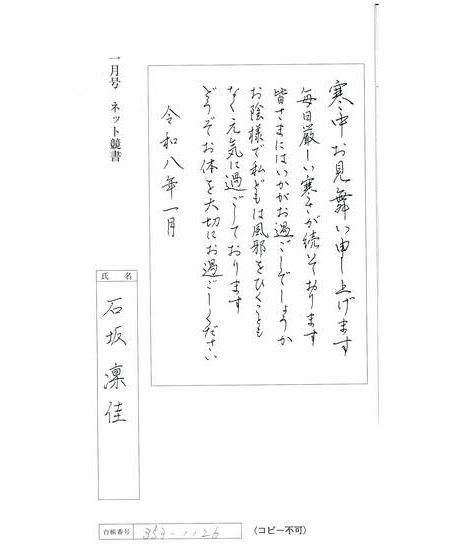 寒中お見舞い申し上げます
毎日厳しい寒さが続いております
皆さまにはいかがお過ごしでしょうか
お陰様で私どもは風邪をひくことも
なく元気に過ごしております
どうぞお体を大切にお過ごしください
令和八年一月
一月号 ネット競書
氏名
石坂 凛佳
台帳番号 353-1126
(コピー不可)